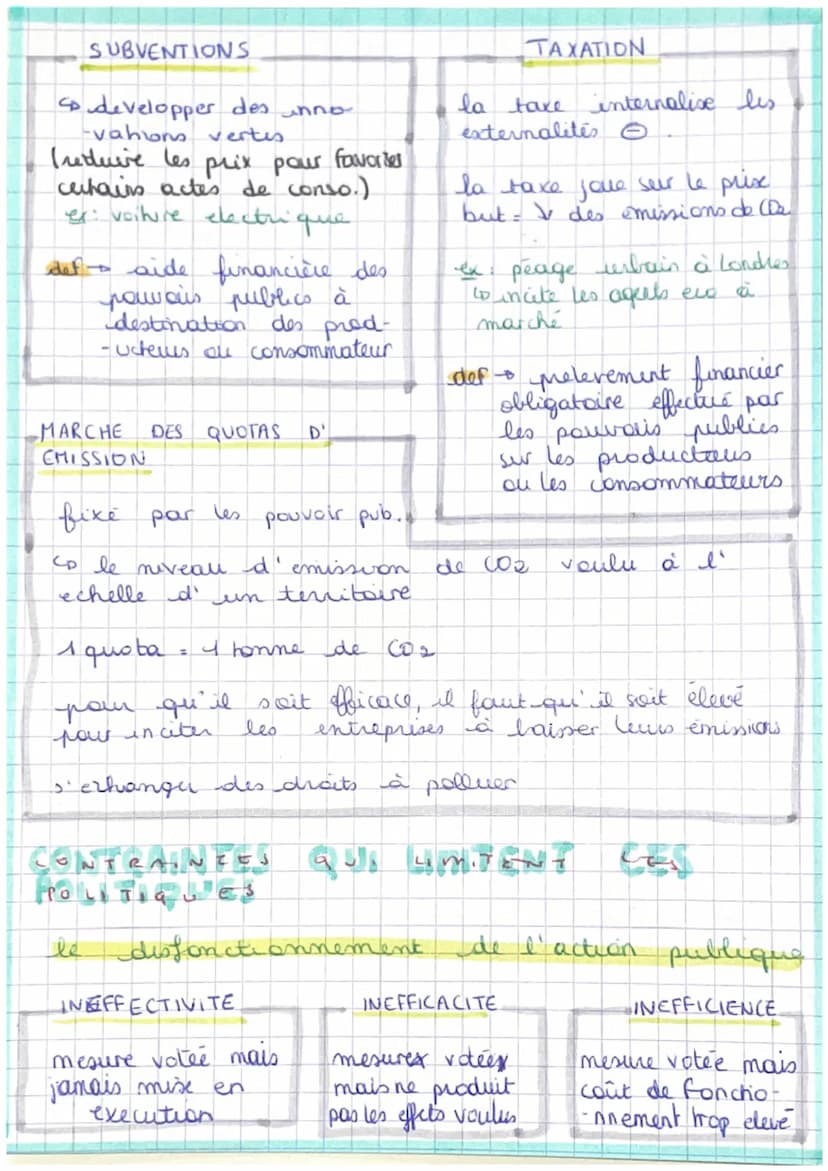 SUBVENTIONS
↳ developper des inno-
-vations vertes
(reduire les prix pour favoriser
certains actes de conso.)
ex: voiture electrique
def → aide financière des
pouvoirs publics à
destination des prod-
-ucteurs ou consommateur
TAXATION
la taxe internalise les
externalités ⊖.
la taxe joue sur le prix
but = ↓ des émissions de CO2
ex: péage urbain à Londres
↳ incite les agents eco à
marché
def → prelevement financier
obligatoire effectué par
les pouvoirs publics
sur les producteurs
ou les consommateurs
MARCHE DES QUOTAS D'
EMISSION
fixé par les pouvoir pub.
↳ le niveau d'emission de CO2 voulu à l'
echelle d'un territoire
1 quota = 1 tonne de CO2
pour qu'il soit efficace, il faut qu'il soit élevé
pour inciter les entreprises à baisser leurs émissions
s'echanger des droits à polluer
CONTRAINTES QUI LIMITENT CES
POLITIQUES
le disfonctionnement de l'action publique
INEFFECTIVITE
mesure votée mais
jamais mise en
execution
INEFFICACITE
mesures votées
mais ne produit
pas les effets voulus
INEFFICIENCE
mesure votée mais
coût de fonctio-
-nnement trop elevé